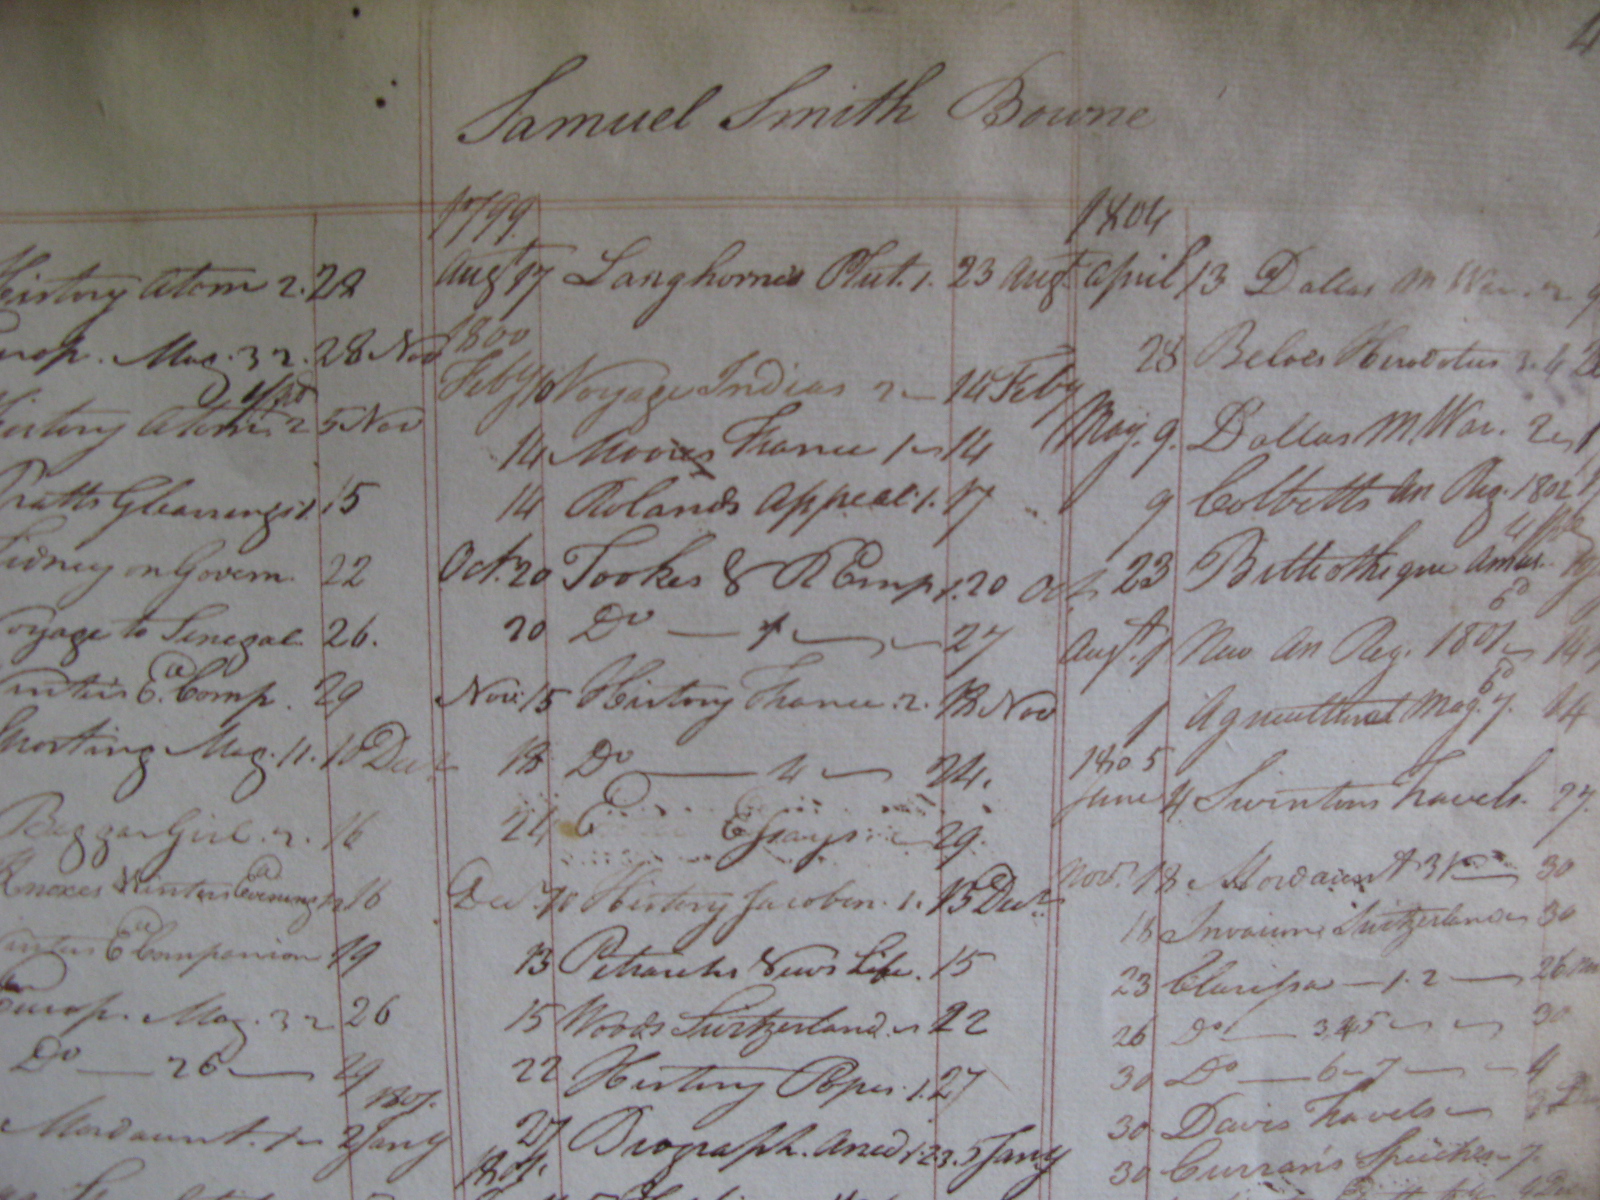 Samuel Smith Bowne
History Atom 2. 28
Mag. 32. 28 Nov
History Atom. 2 5 Nov
Pratts Gleanings 1. 15
Sidney on Govern. 22
Voyage to Senegal 26.
Comp. 29
Sporting Mag. 11. 10 Decr
Beggar Girl. 2. 16
Knoxes Winter Evenings 16
Companion 19
Europ. Mag. 32 26
Do — 26 — 29
1801.
Mordaunt. 1 2 Jany
1799
Augt 17 Langhornes Plut. 1. 23 Augt
1800
Feby 10 Voyage Indias 2 — 14 Feby
14 Moores France 1 14
14 Rolands Appeal 1. 17
Oct. 20 Tookes R Emp 1. 20 Oct
20 Do — 27
Nov. 15 History France. 2. 18 Nov
18 Do — 4 — 24.
24 Essays 29.
Decr 10 History Jacobin. 1. 15 Decr
13 Petrarchs Life. 15
15 Woods Switzerland. 22
22 History Popes. 1. 27
27 Biograph. Anecd 1. 2. 3. 5 Jany
1801.
1804
April 13 Dallas M War. 2
28 Beloes Herodotus 3. 4
May. 9. Dallas M. War. 2
9 Cobbetts An Reg. 1802
23 Bibliotheque Amus.
Augt. 1 New An Reg. 1801 14
1 Agricultural Mag. 7. 14
1805
June 4 Swintons Travels. 27.
Novr. 18 Mordaunt 3 30
18 Switzerland 30
23 Clarissa — 1. 2 — 26
26 Do — 3. 4. 5 30
30 Do — 6 - 7 — 4
30 Davis Travels
30 Currans Speeches 7.